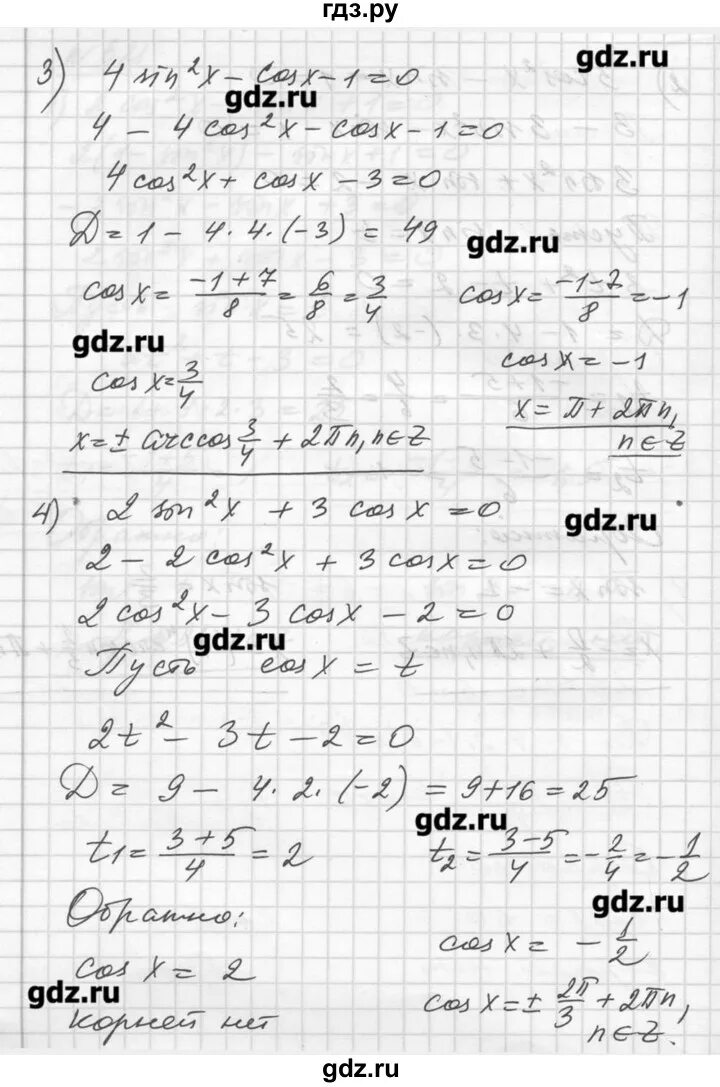 гдз.ру
gdz.ru
3) 4 sin²x - cosx - 1 = 0
gdz.ru
4 - 4cos²x - cosx - 1 = 0
4cos²x + cosx - 3 = 0
D = 1 - 4·4·(-3) = 49
gdz.ru
cosx = (-1+7)/8 = 6/8 = 3/4
cosx = (-1-7)/8 = -1
gdz.ru
cosx = 3/4
cosx = -1
x = ± arccos 3/4 + 2πn, n∈Z
x = π + 2πn,
n∈Z
4) 2 sin²x + 3 cosx = 0
gdz.ru
2 - 2cos²x + 3cosx = 0
2cos²x - 3cosx - 2 = 0
gdz.ru
Пусть cosx = t
2t² - 3t - 2 = 0
D = 9 - 4·2·(-2) = 9+16 = 25
gdz.ru
t1 = (3+5)/4 = 2
t2 = (3-5)/4 = -2/4 = -1/2
Обратно:
gdz.ru
cosx = 2
cosx = -1/2
gdz.ru
корней нет
cosx = ± 2π/3 + 2πn,
n∈Z.
gdz.ru